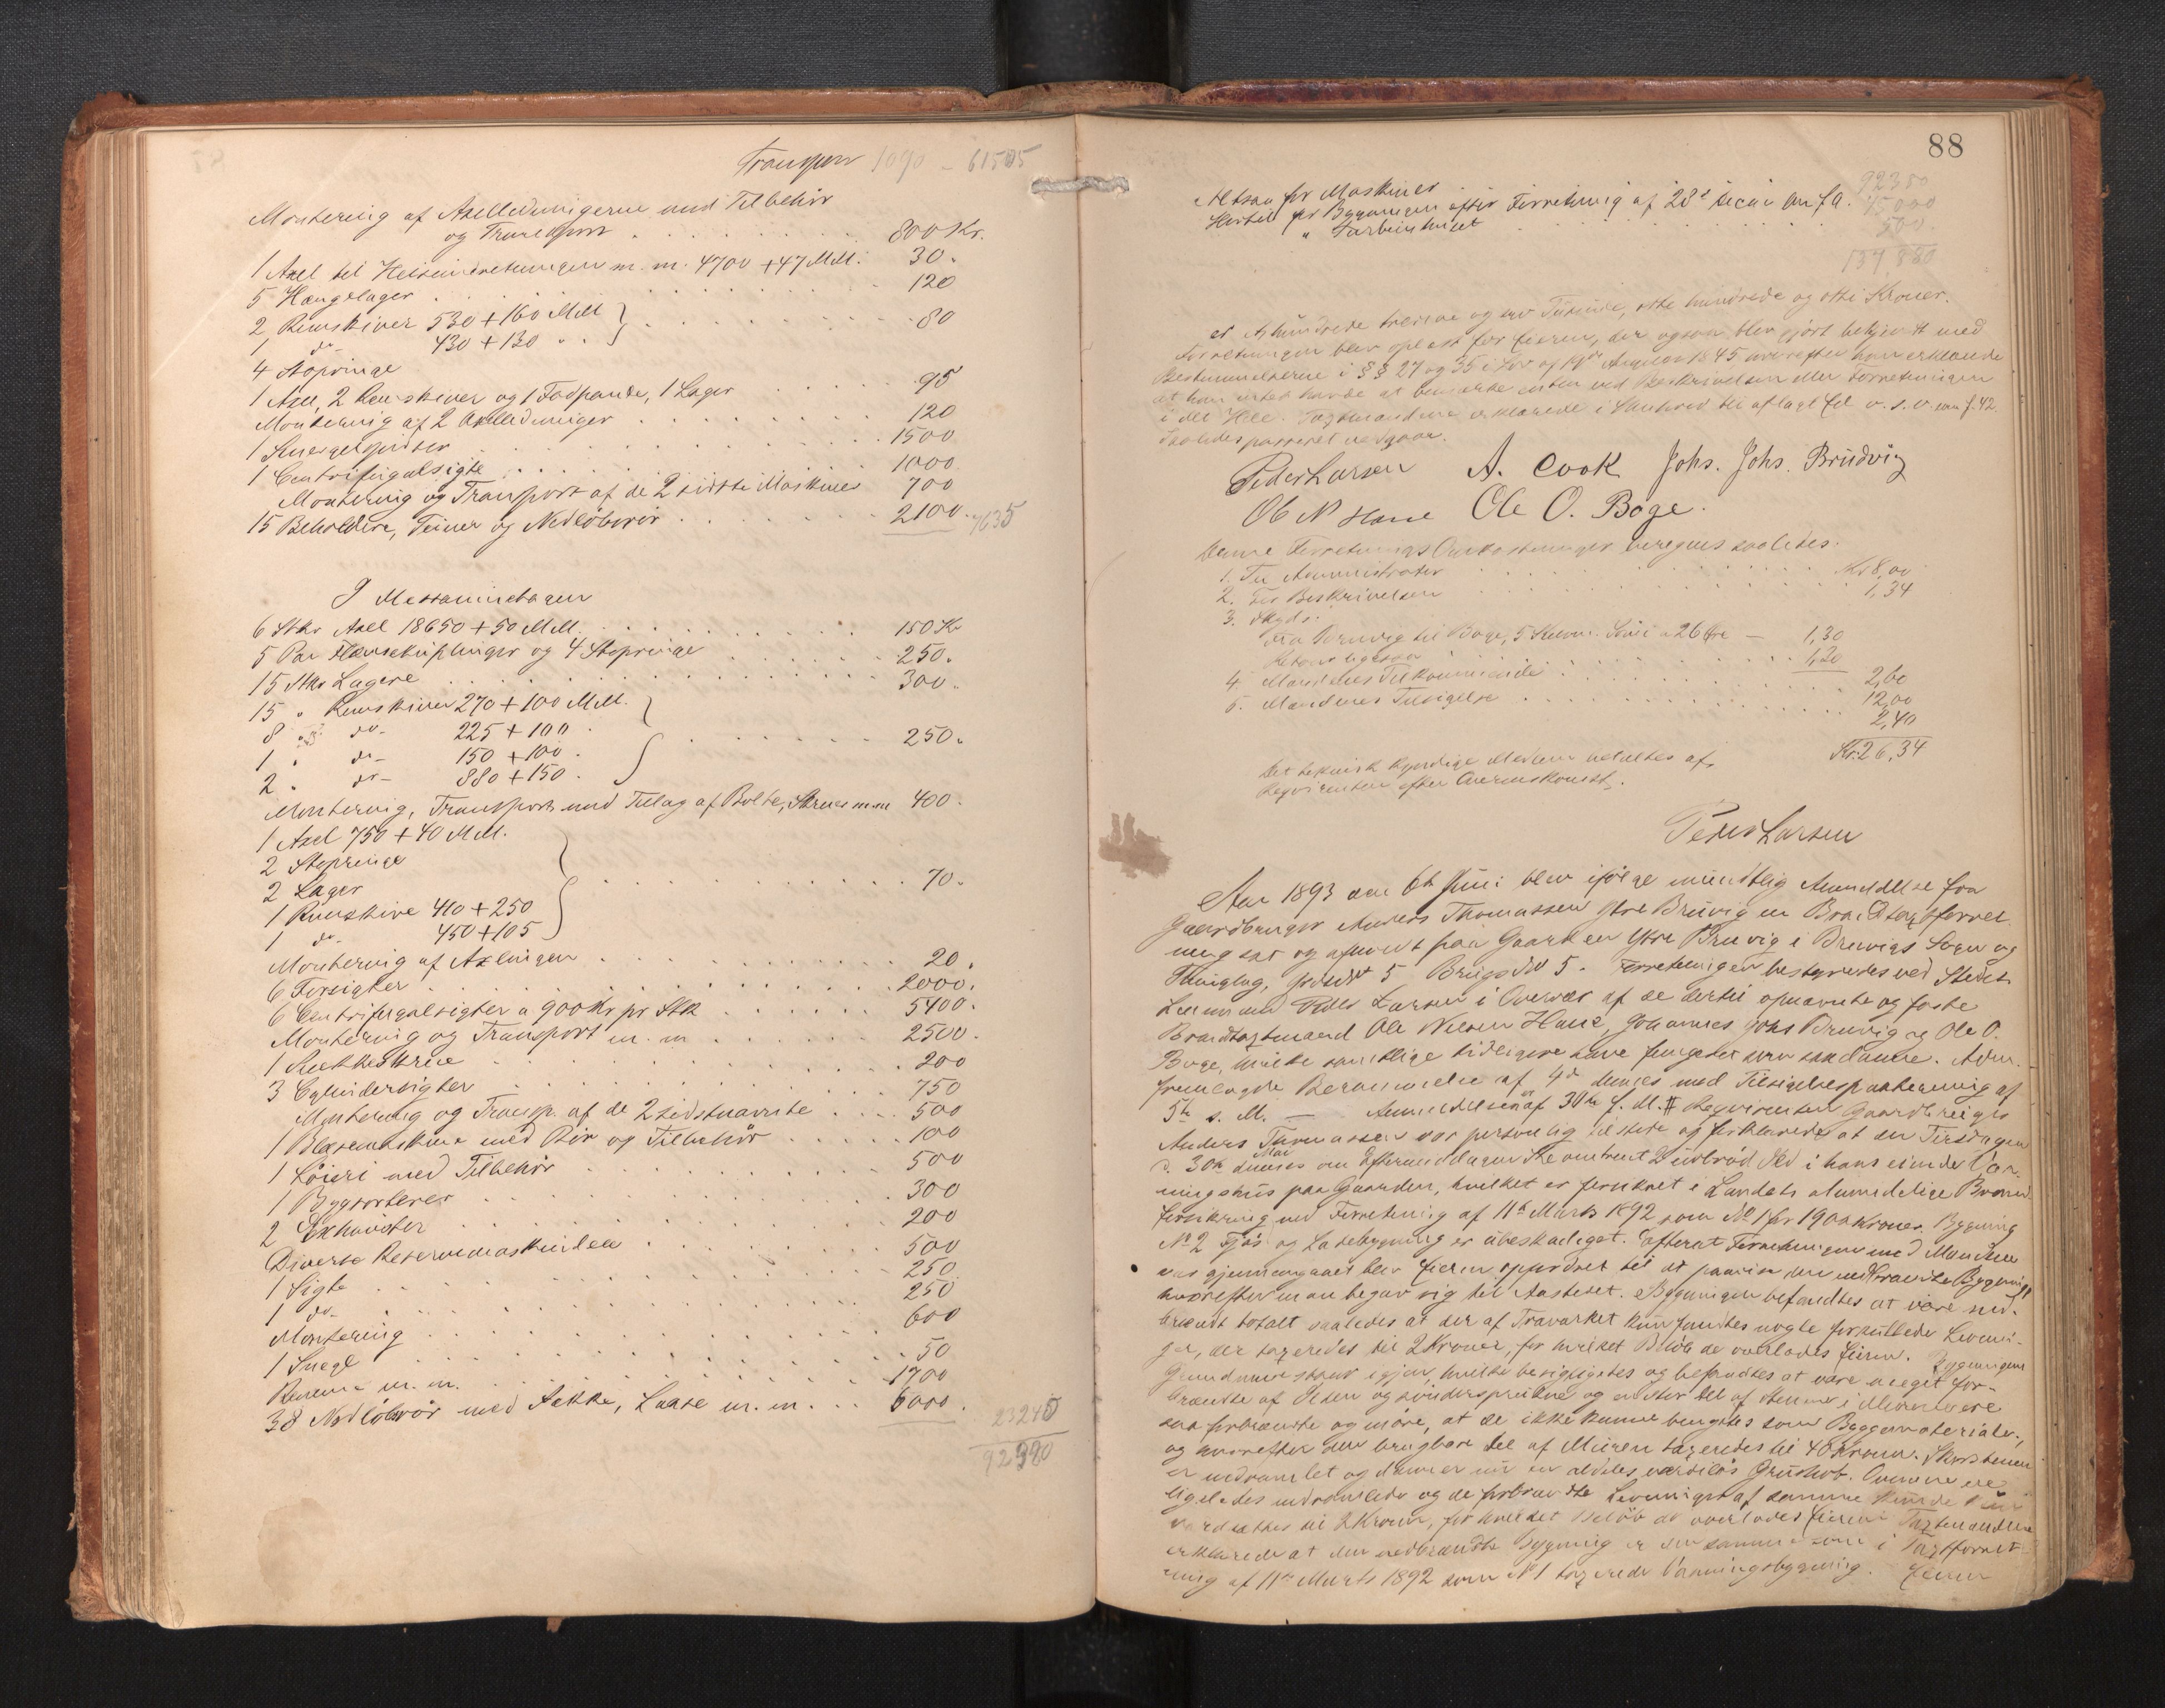 Transport 1090 - 61505
Montering af Axelledningerne med Tilbehör
og Transport . . . 800 Kr.
1 Axel til Heiseindretningen m. m. 4700 + 47 MM. 30.
5 Hængelager . . . 120
2 Remskiver 530 + 160 MM
1 do 430 + 130 " . . . 80
4 Stopringe
1 Axel, 2 Remskiver og 1 Fodpande, 1 Lager . . . 95
Montering af 2 Axelledninger . . . 120
1 . . . 1500
1 Centrifugalsigte . . . 1000.
Montering og Transport af de 2 sidste Maskiner 700
15 Beholdere, Teiner og Nedlöbsrör . . . 2100. 7635
I Messaninetagen
6 Stkr Axel 18650 + 50 MM. . . . 150 Kr
5 Par Flensekuplinger og 4 Stopringe . . . 250.
15 Stkr Lagere . . . 300.
15 " Remskiver 270 + 100 MM.
8 " do- 225 + 100 .
1 " do- 150 + 100 . . . 250.
2 . do- 880 + 150 .
Montering, Transport med Tillæg af Bolte, Skruer m m 400.
1 Axel 750 + 40 MM.
2 Stopringe
2 Lager . . . 70.
1 Remskive 410 + 250
1 do- 450 + 105
Montering af Axlingen . . . 20.
6 Forsigter . . . 2000.
6 Centrifugalsigter a 900 Kr pr Stk . . . 5400.
Montering og Transport m. m . . . 2500.
1 . . . 200
3 Cylindersigter . . . 750
Montering og Transp. af de 2 sidstnævnte . . . 500
1 Blæsemaskine med Rör og Tilbehör . . . 100
1 med Tilbehör . . . 500
1 Bygsorterer . . . 300
2 Exhaustor . . . 200
Diverse Reservemaskindele . . . 500
1 Sigte . . . 250.
1 do- . . . 250
Montering . . . 600
1 Snegl . . . 50
Remme m. m. . . . 1700
38 Nedlöbsrör medÆkke, Laase m. m. . . . 5000. 23240
92380
88
Altsaa for Maskiner 92380
Hertil for Bygningen efter Forretning af 28de Decbr 45000
" Turbinhuset . . . 500.
137,880
er Et hundrede tredive og syv Tusinde, otte hundrede og otti Kroner.
Forretningen blev oplæst for Eieren, der ogsaa blev gjort bekjendt med
Bestemmelserne i §§ 27 og 35 i Lov af 19de August 1845 hvorefter han erklærede
at han intet havde at bemærke enten ved Beskrivelsen eller Forretningen
i det Hele. Taxtmændene erklærede i Henhold til aflagt Ed o. s. v. som f. 42.
Saaledes passeret vedgaar.
Peder Larsen A. Cook Johs. Johs. Brudvig
Ole N Hane Ole O. Boge.
Denne Forretnings Omkostninger beregnes saaledes.
1. Til Administrator . . . Kr 8,00
2. For Beskrivelsen . . . 1,34
3. Skyds:
Fra Bruvig til Boge, 5 Kilom. a 26 Øre - 1,30
Retour ligesaa . . . 1,30
2,60
4. Mændenes Tilkommende . . . 12,00
5. Mændenes Tilsigelse . . . 2,40
Kr: 26,34
Det teknisk kyndige Medlem udbetales af
Reqvirenten efter Overenskomst.
Peder Larsen
Aar 1893 den 6te Juni blev ifølge mundtlig Anmeldelse fra
Gaardbruger Anders Thomassen Ytre Bruvig en Brandtaxtforret
ning sat og afholdt paa Gaarden Ytre Bruvig i Bruvigs Sogn og
Thinglag, Gards No 5 Brugs No 5. Forretningen bestyredes ved Stedets
Lensmand Peder Larsen i Overvær af de dertil opnævnte og faste
Brandtaxtmænd Ole Nilsen Hane, Johannes Johs Bruvig og Ole O.
Boge, hvilke samtlige tidligere have fungeret som saadanne. Adm.
fremlagde Berammelse af 4de dennes med Tilsigelsespaategning af
5te s. M. — Anmeldelsen er af 30te f. M. Reqvirenten Gaardbruger
Anders Thomassen var personlig tilstede og forklarede at der Tirsdagen
d. 30te Mai om Eftermiddagen Kl omtrent 2 udbrød Ild i hans eiende Vaa
ningshus paa Gaarden, hvilket er forsikret i Landets almindelige Brand
forsikring ved Forretning af 11te Marts 1892 som No 1 for 1900 Kroner. Bygning
No 2 Fjøs og Ladebygning er ubeskadiget. Efterat Forretningen med Mændene
var gjennemgaaet blev Eieren opfordret til at paavise den nedbrændte Bygning
hvorefter man begav sig til Aastedet. Bygningen befandtes at være ned-
brændt totalt saaledes at der af Træværket kun fandtes nogle forkullede Levnin-
ger, der taxeredes til 2 Kroner, for hvilket Beløb de overlodes Eieren. Bygningens
Grundmur staar igjen, hvilke besigtigedes og befandtes at være meget for-
brændte af Ilden og søndersprukne og en stor Del af Stenene i Murene ere
saa forbrændte og møre, at de ikke kunne benyttes som Byggemateriale,
og hvorefter den brugbare Del af Muren taxeredes til 40 Kroner. Skorstenen
er nedramlet og danner nu en aldeles værdiløs Grushob. Ovnene ere
ligeledes nedramlede og de forbrændte Levninger af samme kunde kun
værdsættes til 2 Kroner, for hvilket Beløb de overlodes Eieren. Taxtmændene
erklærede at den nedbrændte Bygning er den samme som i Taxtforret-
ning af 11te Marts 1892 som No 1 taxerede Vaaningsbygning. Eieren